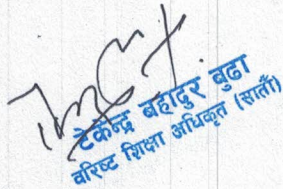 टेकेन्द्र बहादुर बुढा
वरिष्ट शिक्षा अधिकृत (सातौँ)